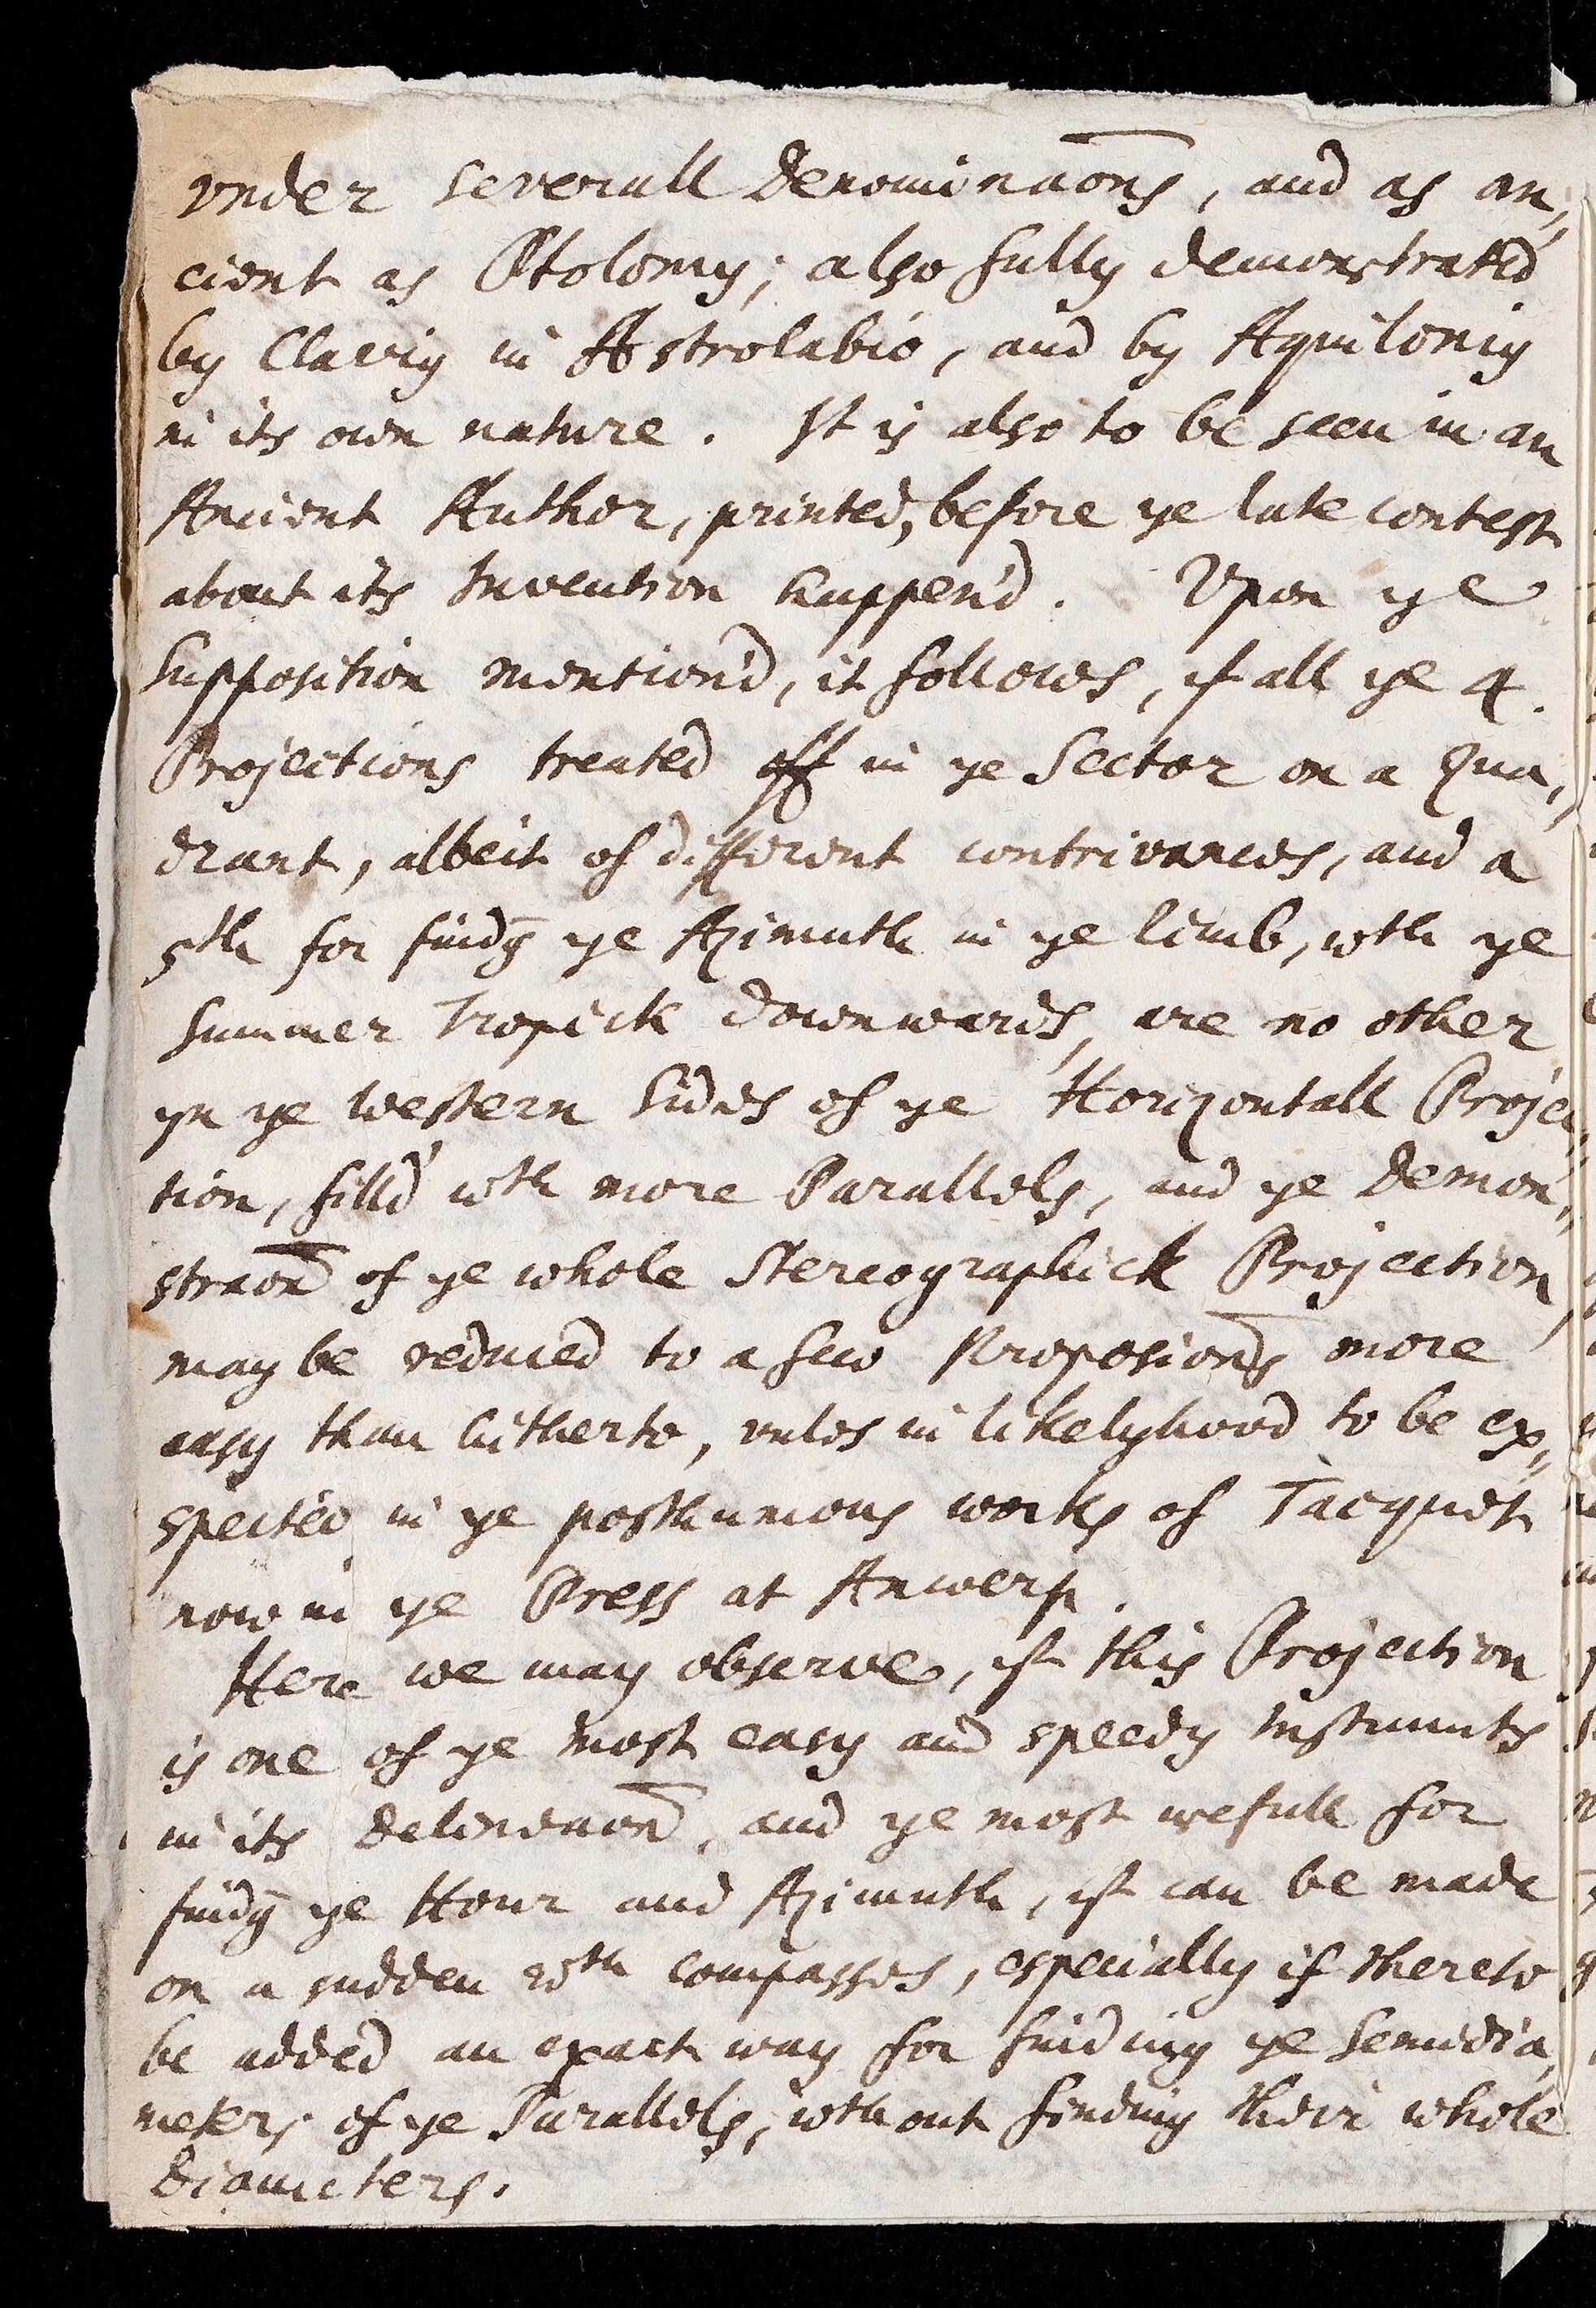 vnder severall Denominaõns, and as an,
cient as Ptolomy; also fully demonstrated
by Clavig in Astrolabio, and by Aquilonig
in its own nature. It is also to be seen in an
Ancient Author, printed, before ye late contest
about its Invention happen'd. Upon ye
Supposition mention'd, it followes, yt all ye 4.
Projections treated off in ye Sector on a Qua,
drant, albeit of different contrivances, and a
5th for findḡ ye Azimuth in ye limb, wth ye
Summer Tropick downwards, are no other
yn ye western Sides of ye Horizontall Projec,
tion, fill'd wth more Parallels, and ye Demon,
straõn of ye whole Stereographick Projection
may be reduced to a few Proposiõns more
easy than hitherto, rules in likelyhood to be ex,
spected in ye posthumous works of Tacquet
now in ye Press at Anwerp.
Here we may observe, yt this Projection
is one of ye most easy and speedy Instrumts
in its Delineaõn, and ye most usefull for
findḡ ye Hour and Azimuth, yt can be made
on a sudden wth compasses, especially if thereto
be added an exact way for finding ye Semidia,
meters of ye Parallels, wthout finding their whole
Diameters.